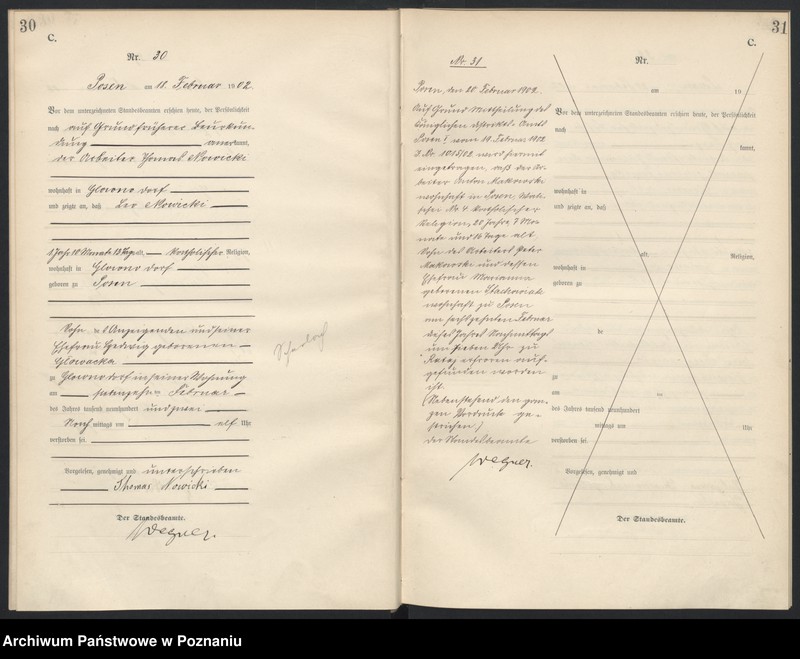 30
C.
Nr. 30
Posen am 18. Februar 1902.
Vor dem unterzeichneten Standesbeamten erschien heute, der Persönlichkeit
nach auf Grund früherer Beurkun-
dung anerkannt,
der Arbeiter Thomas Nowicki
wohnhaft in Glowno Dorf
und zeigte an, daß Leo Nowicki
1 Jahr 10 Monate alt, katholischer Religion,
wohnhaft in Glowno Dorf
geboren zu Posen
Sohn des Anzeigenden und seiner
Ehefrau Hedwig geborenen
Glowacka
zu Glowno Dorf in seiner Wohnung
am Februar
des Jahres tausend neunhundert und zwei
Nachmittags um elf Uhr
verstorben sei.
Vorgelesen, genehmigt und unterschrieben
Thomas Nowicki
Der Standesbeamte.
Wegner.
31
C.
Nr. 31
Posen, den 20 Februar 1902.
Auf Grund Mittheilung des
Königlichen Distrikts-Amts
Posen I vom 19. Februar 1902
wird hiermit
eingetragen, daß der Ar-
beiter Anton Makowski
wohnhaft in Posen, Wall-
Nr. 4 katholischer
Religion, 20 Jahre 7 Mo-
nate und 16 Tage alt
Sohn des Arbeiters Peter
Makowski und dessen
Ehefrau Marianna
geborenen Stachowiak
wohnhaft zu Posen
am sechszehnten Februar
dieses Jahres Nachmittags
um sieben Uhr zu
Rataj erfroren auf-
gefunden worden
ist.
(Nebenstehend den gan-
zen Vordruck ge-
strichen.)
Der Standesbeamte
Wegner.
Nr.
am 19
Vor dem unterzeichneten Standesbeamten erschien heute, der Persönlichkeit
nach
kannt,
wohnhaft in
und zeigte an, daß
alt, Religion,
wohnhaft in
geboren zu
de
zu
am
des Jahres tausend neunhundert
mittags um Uhr
verstorben sei.
Vorgelesen, genehmigt und
Der Standesbeamte.
Archiwum Państwowe w Poznaniu